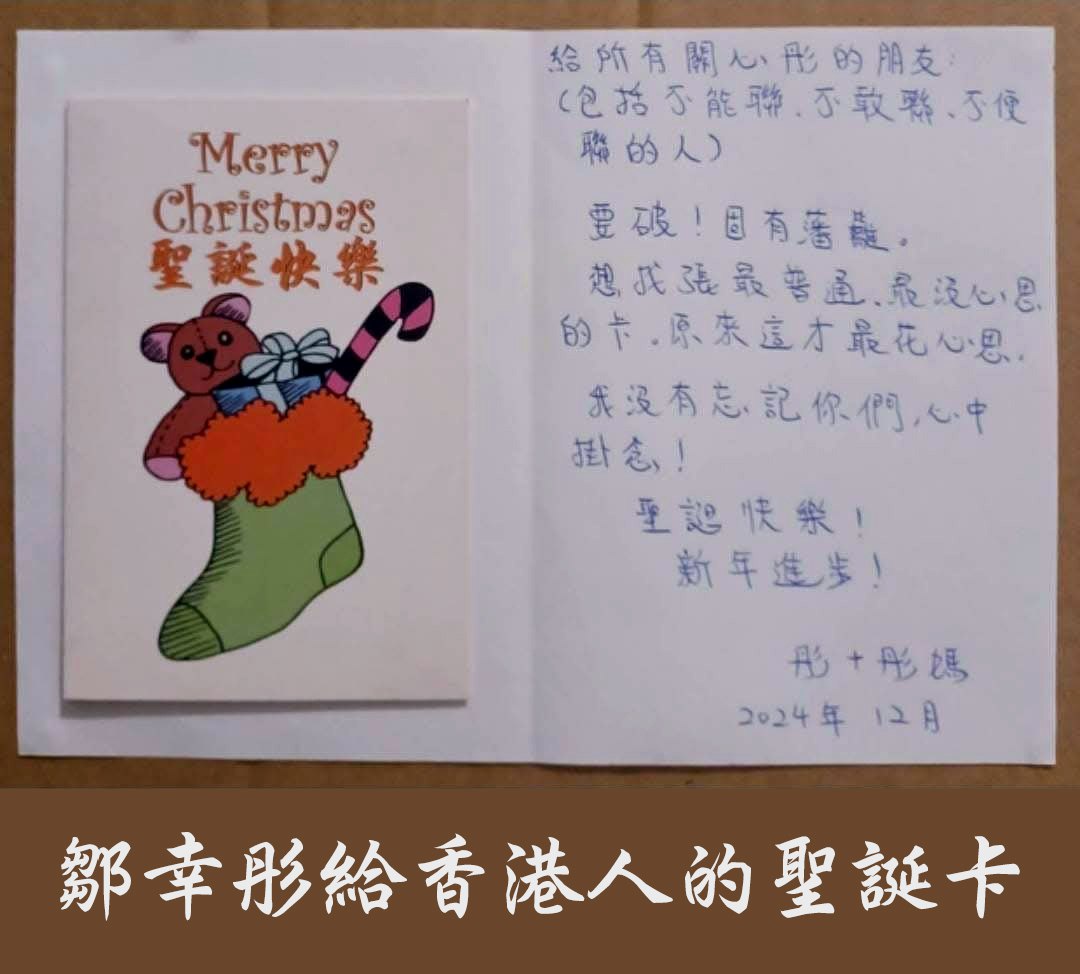 Merry
Christmas
聖誕快樂
給所有關心彤的朋友:
(包括不能聯、不敢聯、不便
聯的人)
要破！固有藩籬。
想找張最普通、最沒心思
的卡。原來這才最花心思.
我沒有忘記你們,心中
掛念！
聖誕快樂！
新年進步！
彤+彤媽
2024年 12月
鄒幸彤給香港人的聖誕卡